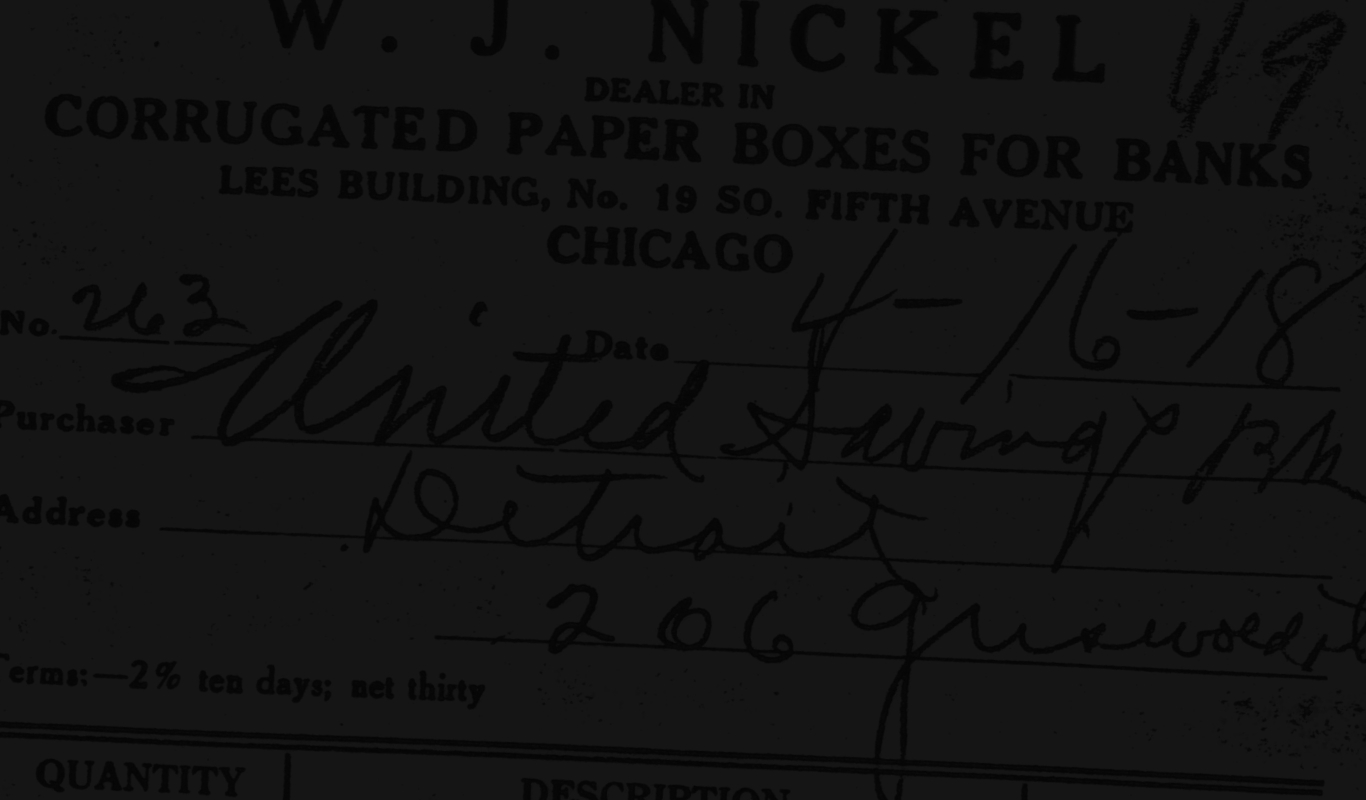 W. J. NICKEL 119
DEALER IN
CORRUGATED PAPER BOXES FOR BANKS
LEES BUILDING, No. 19 SO. FIFTH AVENUE
CHICAGO
No. 263 Date 4-16-18
Purchaser United Savings Bk
Address Detroit
206 Griswold
Terms:—2% ten days; net thirty
QUANTITY DESCRIPTION